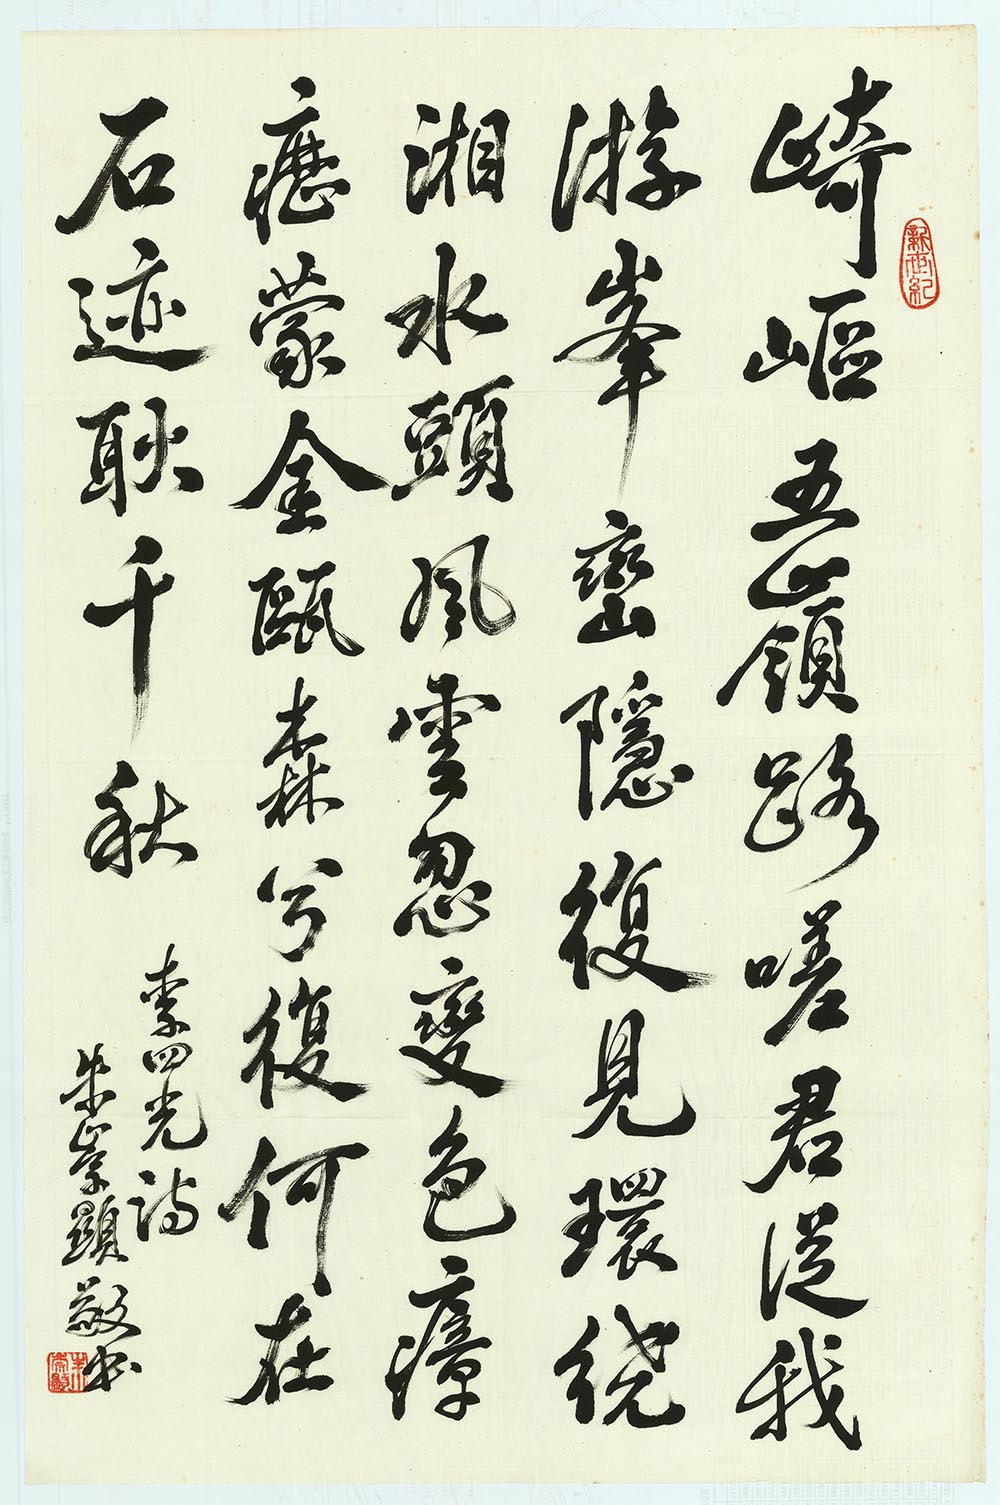 崎嶇五嶺路嗟君從我
游峯巒隱復見環绕
湘水頭風雲忽變色瘴
癧蒙金甌森兮復何在
石迹耿千秋
李四光詩
朱崇顯敬书
新世紀